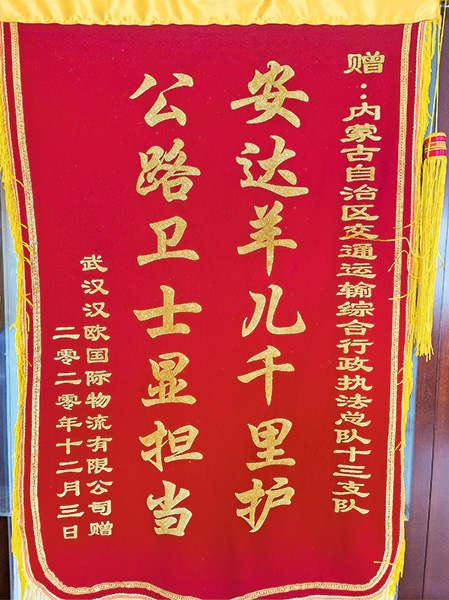 赠：内蒙古自治区交通运输综合行政执法总队十三支队
安达羊儿千里护
公路卫士显担当
武汉汉欧国际物流有限公司赠
二零二零年十二月三日